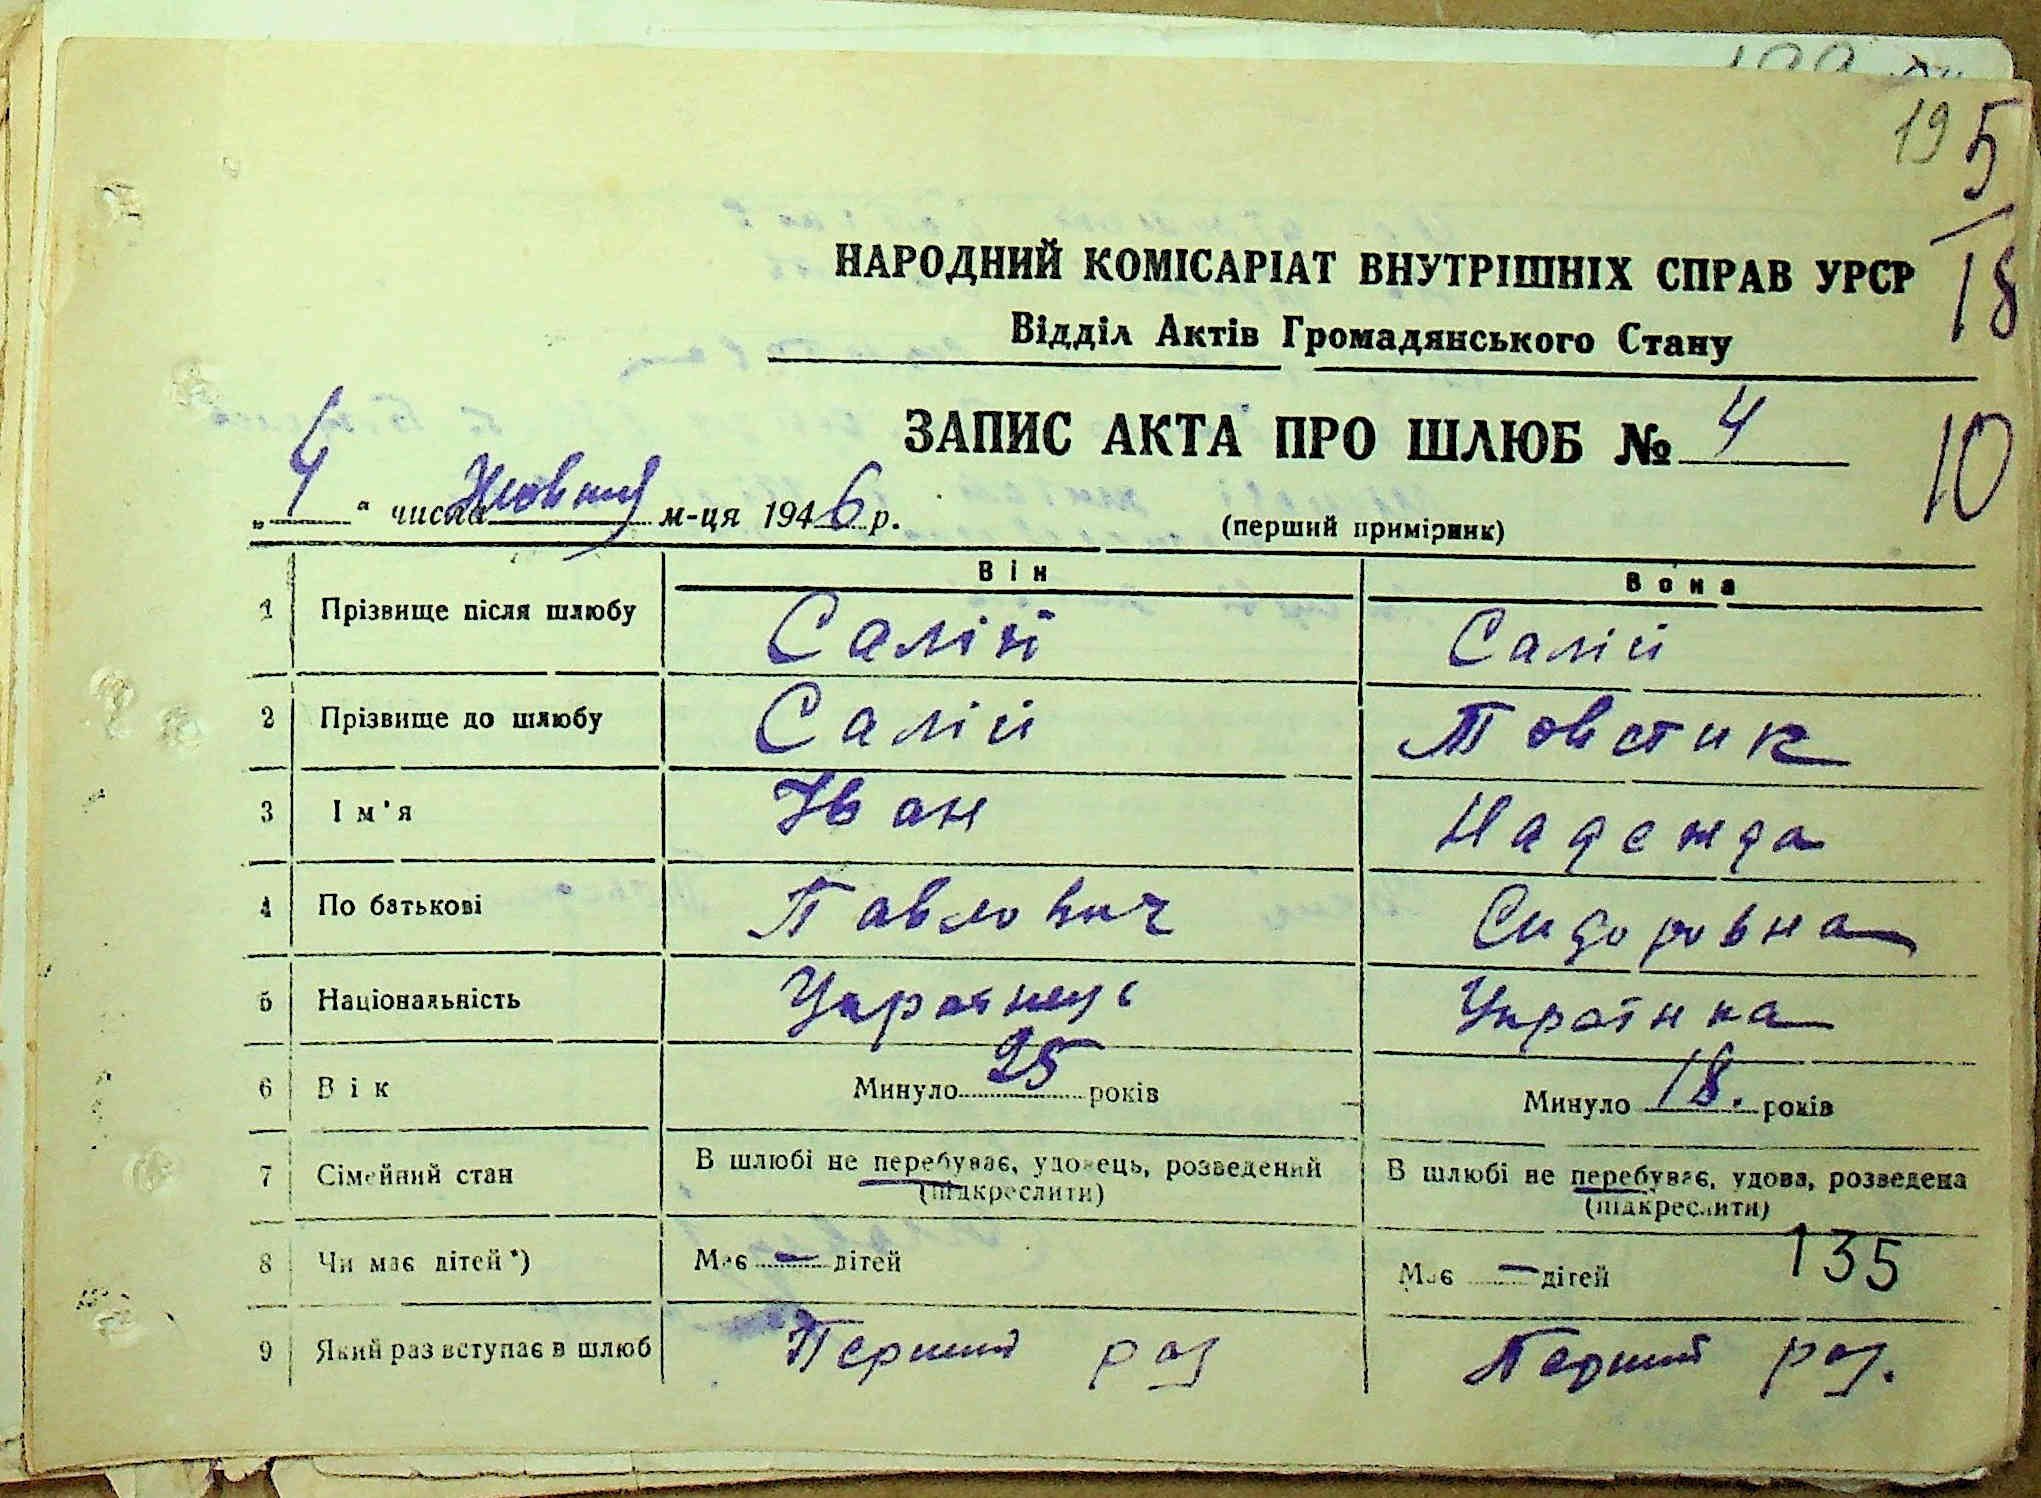 19 5
18
НАРОДНИЙ КОМІСАРІАТ ВНУТРІШНІХ СПРАВ УРСР
Відділ Актів Громадянського Стану
ЗАПИС АКТА ПРО ШЛЮБ № 4
10
„4“ числа Жовтня м-ця 1946 р.
(перший примірник)
Він Вона
1 Прізвище після шлюбу Салій Салій
2 Прізвище до шлюбу Салій Товстик
3 Ім'я Іван Надежда
4 По батькові Павлович Сидоровна
5 Національність Українець Українка
6 Вік Минуло 25 років Минуло 18. років
7 Сімейний стан В шлюбі не перебуває, удовець, розведений В шлюбі не перебуває, удова, розведена
(підкреслити) (підкреслити)
8 Чи має дітей *) Має – дітей Має – дітей 135
9 Який раз вступає в шлюб Перший раз Перший раз.